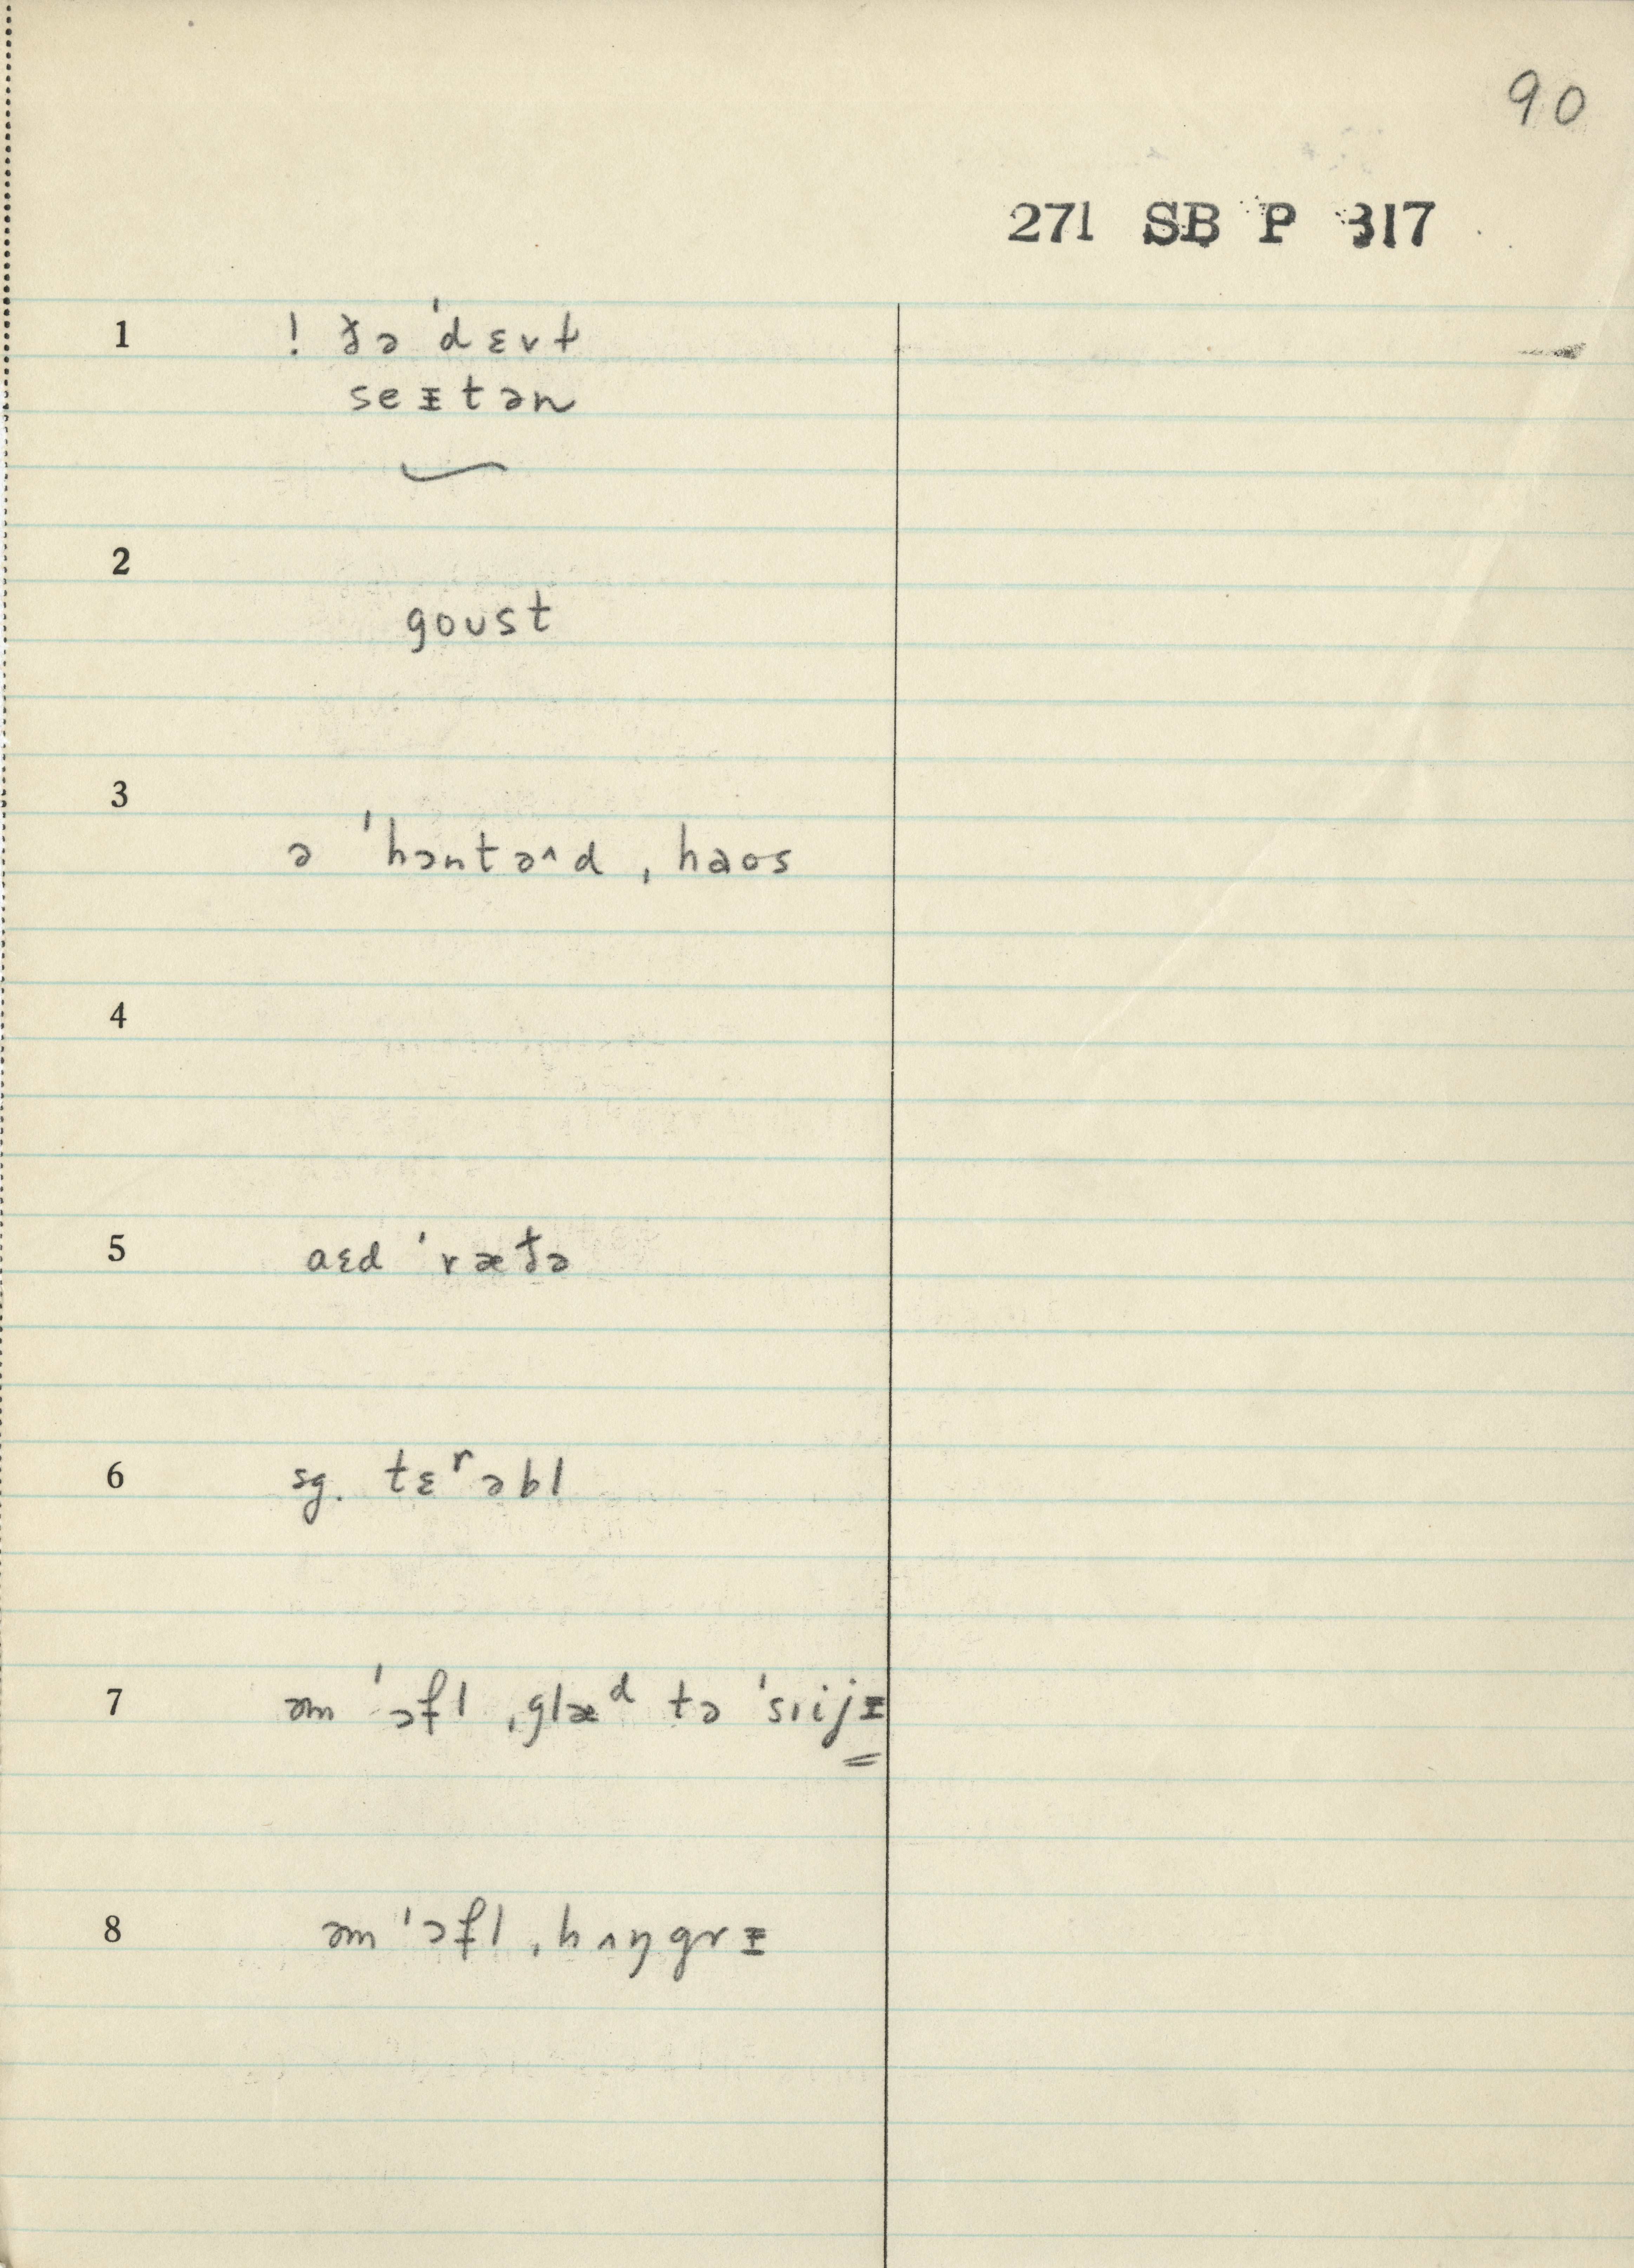 90
271 SB P 317
1 ! ðə ˈdɛvɫ
seᵻtən
2
goust
3
ə ˈhɔntəʌd ˌhaos
4
5 aɛd ˈræðə
6 sg. tɛʳəbl
7 əm ˈɔfl ˌglæᵈ tə ˈsɪijᵻ
8 əm ˈɔfl ˌhʌŋgrᵻ